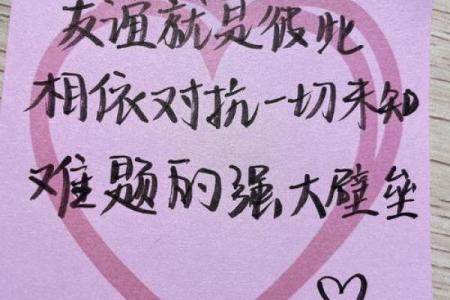 友谊就是彼此
相依对抗一切未知
难题的强大壁垒